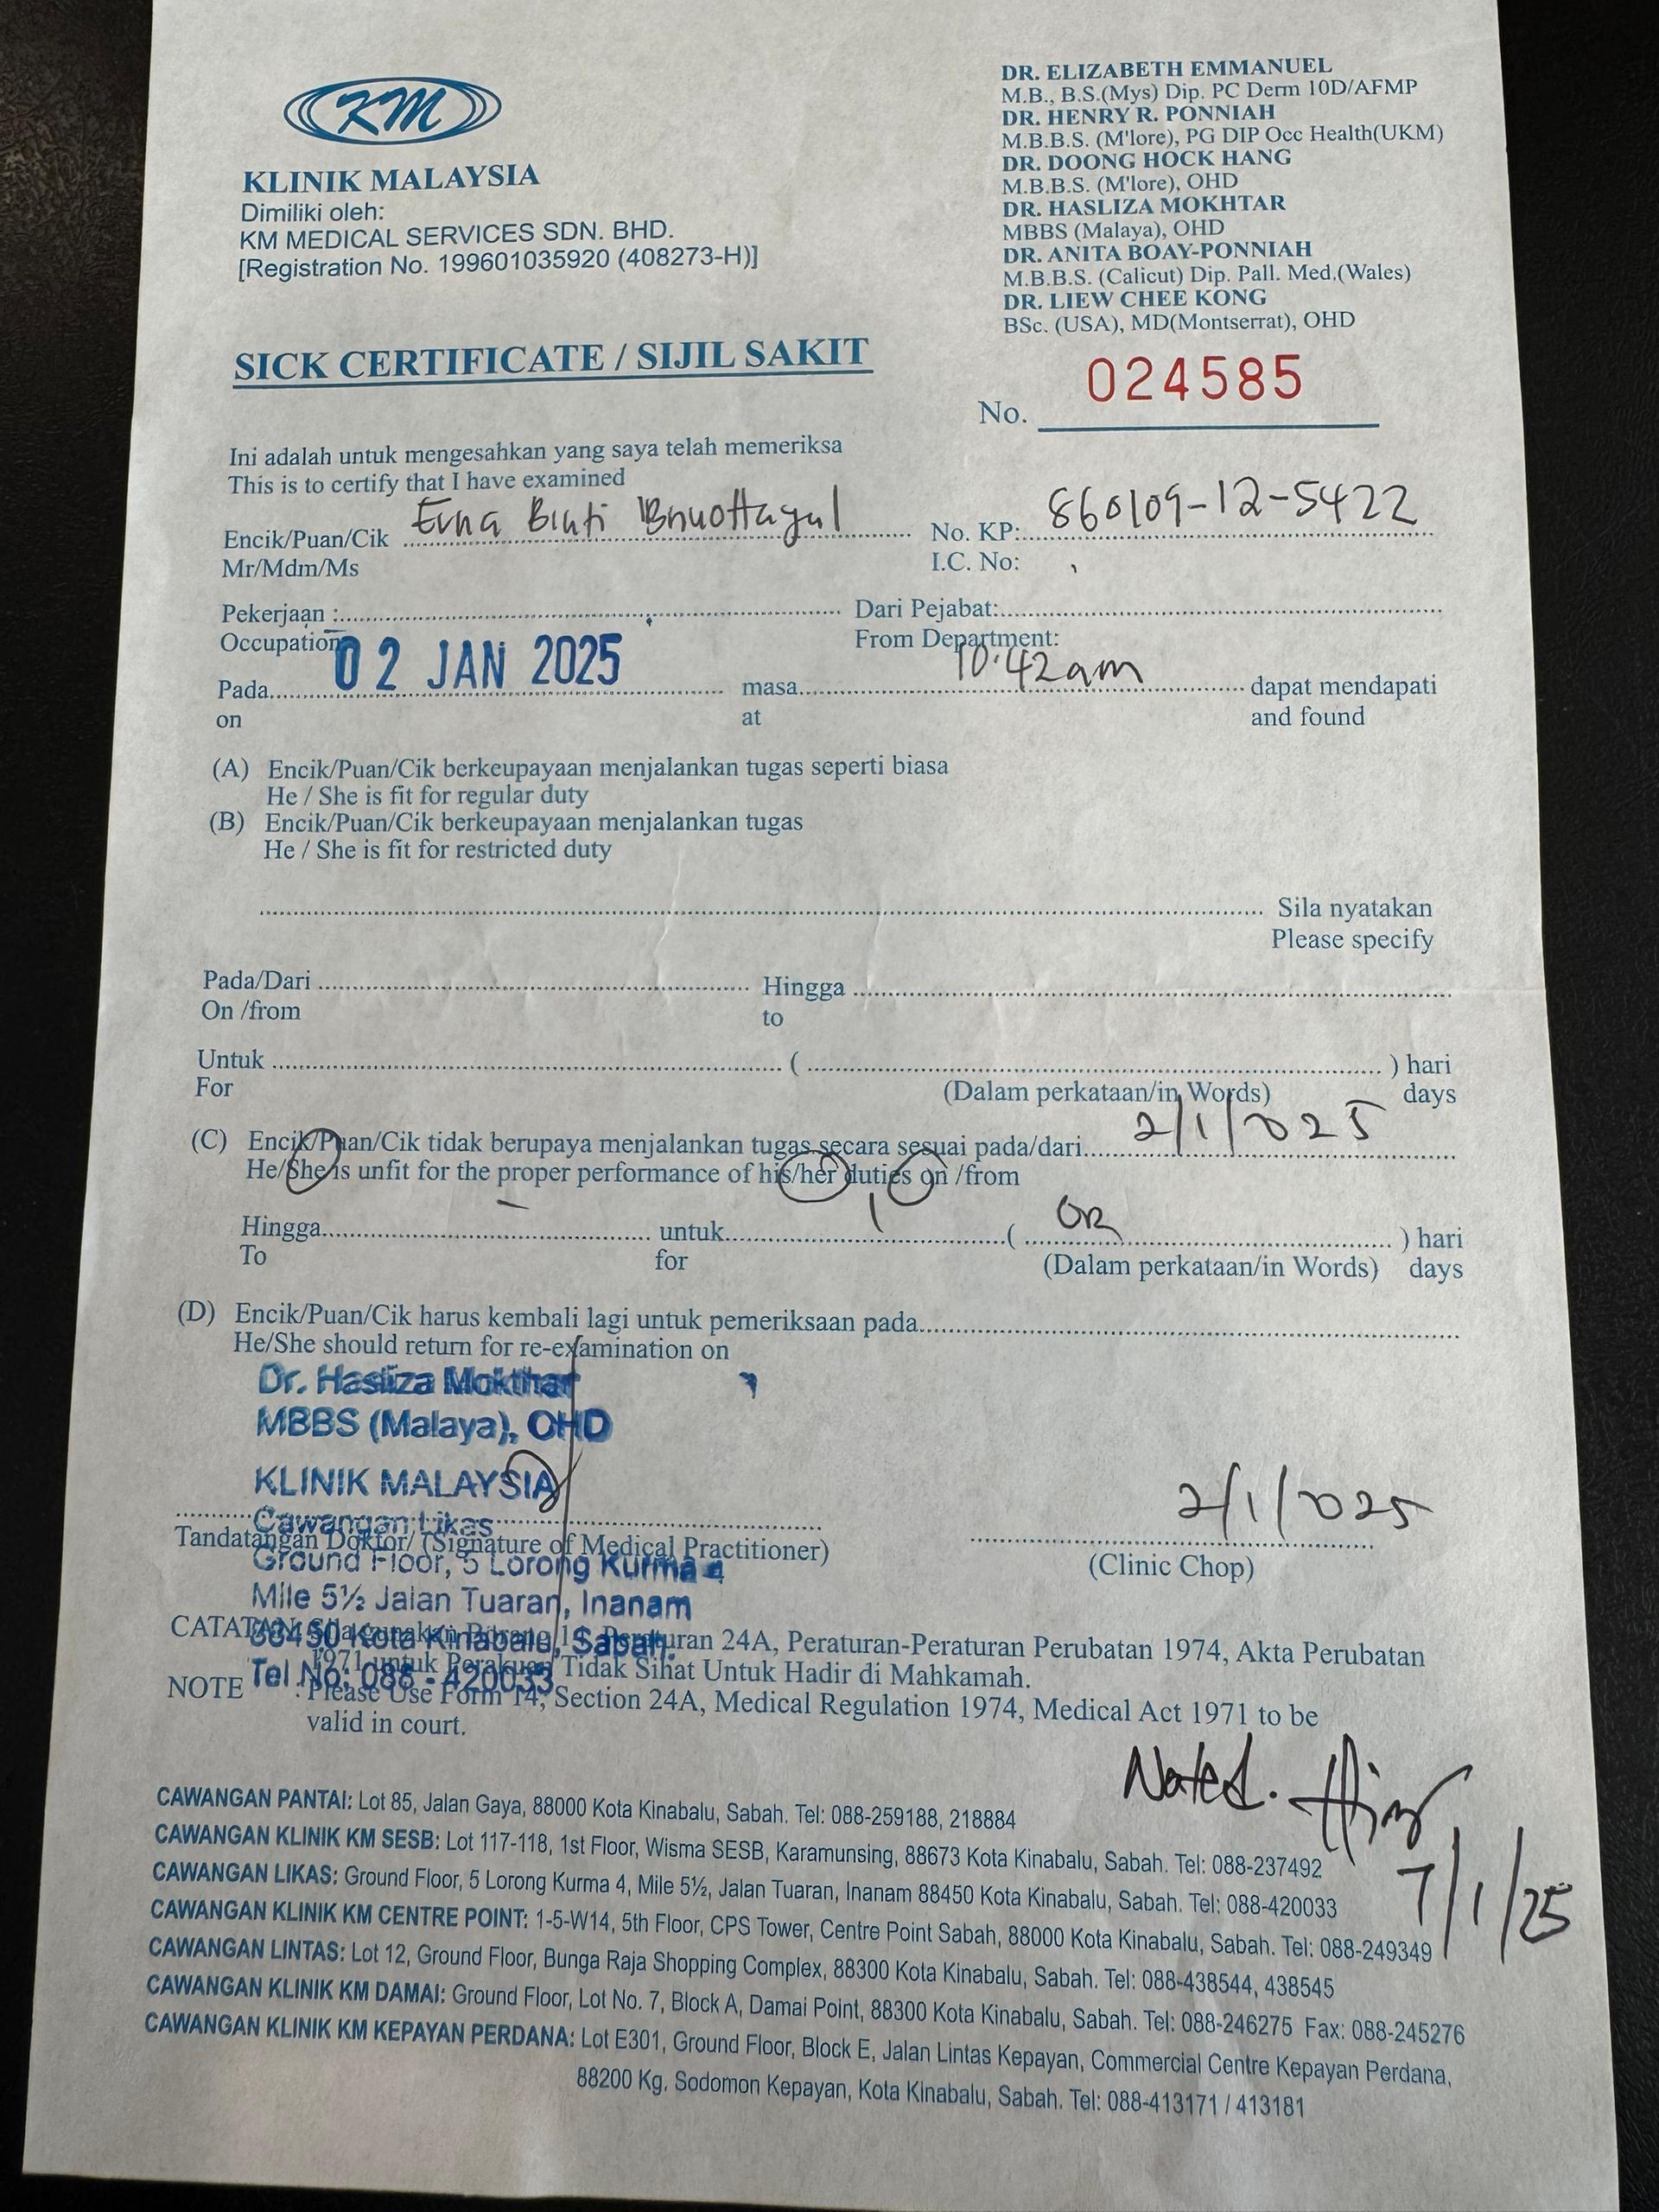 KM
KLINIK MALAYSIA
Dimiliki oleh:
KM MEDICAL SERVICES SDN. BHD.
[Registration No. 199601035920 (408273-H)]
DR. ELIZABETH EMMANUEL
M.B., B.S.(Mys) Dip. PC Derm 10D/AFMP
DR. HENRY R. PONNIAH
M.B.B.S. (M'lore), PG DIP Occ Health(UKM)
DR. DOONG HOCK HANG
M.B.B.S. (M'lore), OHD
DR. HASLIZA MOKHTAR
MBBS (Malaya), OHD
DR. ANITA BOAY-PONNIAH
M.B.B.S. (Calicut) Dip. Pall. Med,(Wales)
DR. LIEW CHEE KONG
BSc. (USA), MD(Montserrat), OHD
SICK CERTIFICATE / SIJIL SAKIT
No. 024585
Ini adalah untuk mengesahkan yang saya telah memeriksa
This is to certify that I have examined
Encik/Puan/Cik Erna Binti No. KP: 860109-12-5422
Mr/Mdm/Ms I.C. No:
Pekerjaan : Dari Pejabat:
Occupation From Department:
Pada 02 JAN 2025 masa 10:42am dapat mendapati
on at and found
(A) Encik/Puan/Cik berkeupayaan menjalankan tugas seperti biasa
He / She is fit for regular duty
(B) Encik/Puan/Cik berkeupayaan menjalankan tugas
He / She is fit for restricted duty
Sila nyatakan
Please specify
Pada/Dari Hingga
On /from to
Untuk ( ) hari
For (Dalam perkataan/in Words) days
(C) Encik/Puan/Cik tidak berupaya menjalankan tugas secara sesuai pada/dari 2/1/2025
He/She is unfit for the proper performance of his/her duties on /from
Hingga - untuk 1 ( ) hari
To for (Dalam perkataan/in Words) days
(D) Encik/Puan/Cik harus kembali lagi untuk pemeriksaan pada
He/She should return for re-examination on
Dr. Hasliza Mokthar
MBBS (Malaya), OHD
KLINIK MALAYSIA
Cawangan Likas
2/1/2025
Tandatangan Doktor/ (Signature of Medical Practitioner) (Clinic Chop)
Ground Floor, 5 Lorong Kurma 4
Mile 5½ Jalan Tuaran, Inanam
88450 Kota Kinabalu, Sabah.
Tel No: 088 - 420033
CATATAN: Sila gunakan Borang 14, Peraturan 24A, Peraturan-Peraturan Perubatan 1974, Akta Perubatan
1971 untuk Perakuan Tidak Sihat Untuk Hadir di Mahkamah.
NOTE : Please Use Form 14, Section 24A, Medical Regulation 1974, Medical Act 1971 to be
valid in court.
Noted.
7/1/25
CAWANGAN PANTAI: Lot 85, Jalan Gaya, 88000 Kota Kinabalu, Sabah. Tel: 088-259188, 218884
CAWANGAN KLINIK KM SESB: Lot 117-118, 1st Floor, Wisma SESB, Karamunsing, 88673 Kota Kinabalu, Sabah. Tel: 088-237492
CAWANGAN LIKAS: Ground Floor, 5 Lorong Kurma 4, Mile 5½, Jalan Tuaran, Inanam 88450 Kota Kinabalu, Sabah. Tel: 088-420033
CAWANGAN KLINIK KM CENTRE POINT: 1-5-W14, 5th Floor, CPS Tower, Centre Point Sabah, 88000 Kota Kinabalu, Sabah. Tel: 088-249349
CAWANGAN LINTAS: Lot 12, Ground Floor, Bunga Raja Shopping Complex, 88300 Kota Kinabalu, Sabah. Tel: 088-438544, 438545
CAWANGAN KLINIK KM DAMAI: Ground Floor, Lot No. 7, Block A, Damai Point, 88300 Kota Kinabalu, Sabah. Tel: 088-246275 Fax: 088-245276
CAWANGAN KLINIK KM KEPAYAN PERDANA: Lot E301, Ground Floor, Block E, Jalan Lintas Kepayan, Commercial Centre Kepayan Perdana,
88200 Kg. Sodomon Kepayan, Kota Kinabalu, Sabah. Tel: 088-413171 / 413181